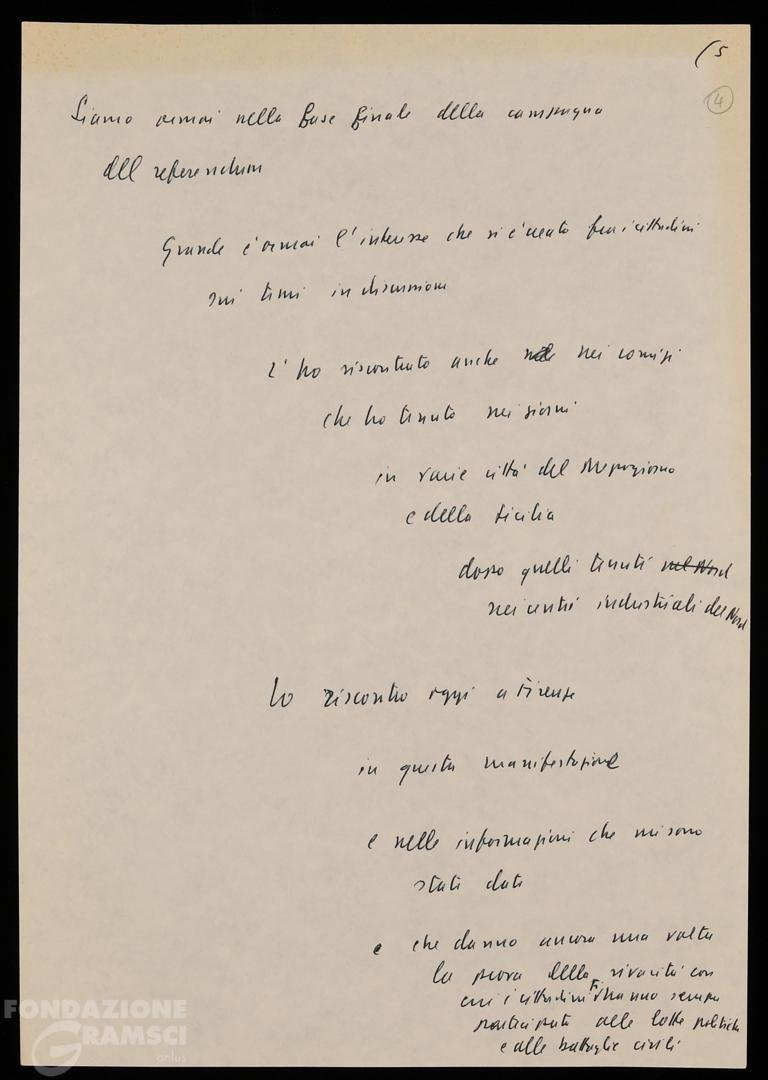 (5
4
Siamo ormai nella fase finale della campagna
del referendum
Grande è ormai l'interesse che si è creato fra i cittadini
sui temi in discussione
L'ho riscontrato anche nei comizi
che ho tenuto nei giorni
in varie città del Mezzogiorno
e della Sicilia
dopo quelli tenuti nel Nord
nei centri industriali del Nord
Lo riscontro oggi a Firenze
in questa manifestazione
e nelle informazioni che mi sono
stati dati
e che danno ancora una volta
la prova della vivacità con
cui i cittadini F. hanno sempre
partecipato alle lotte politiche
e alle battaglie civili
FONDAZIONE
GRAMSCI
onlus